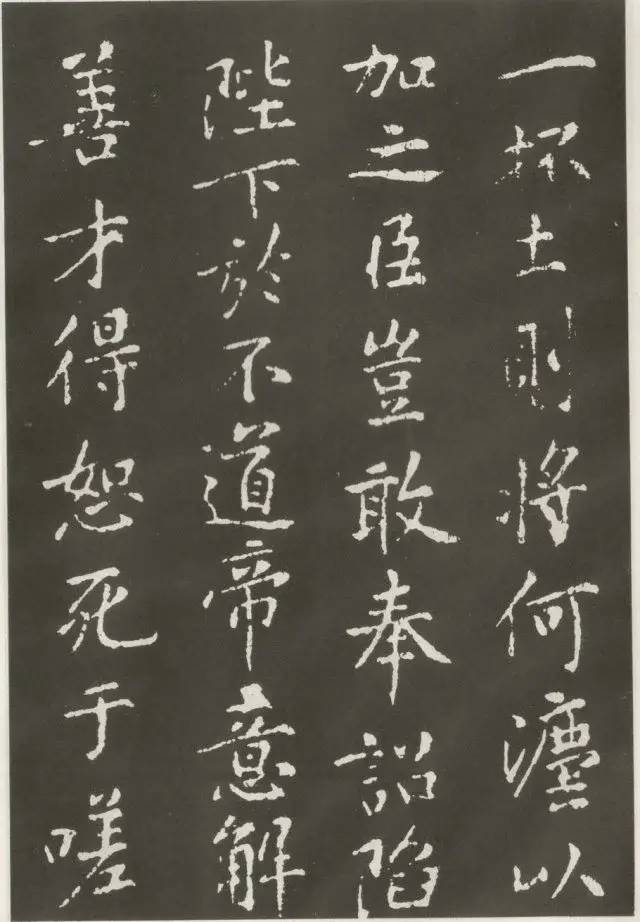 一抔土則將何灋以
加之臣豈敢奉詔陷
陛下於不道帝意解
善才得恕死于嗟